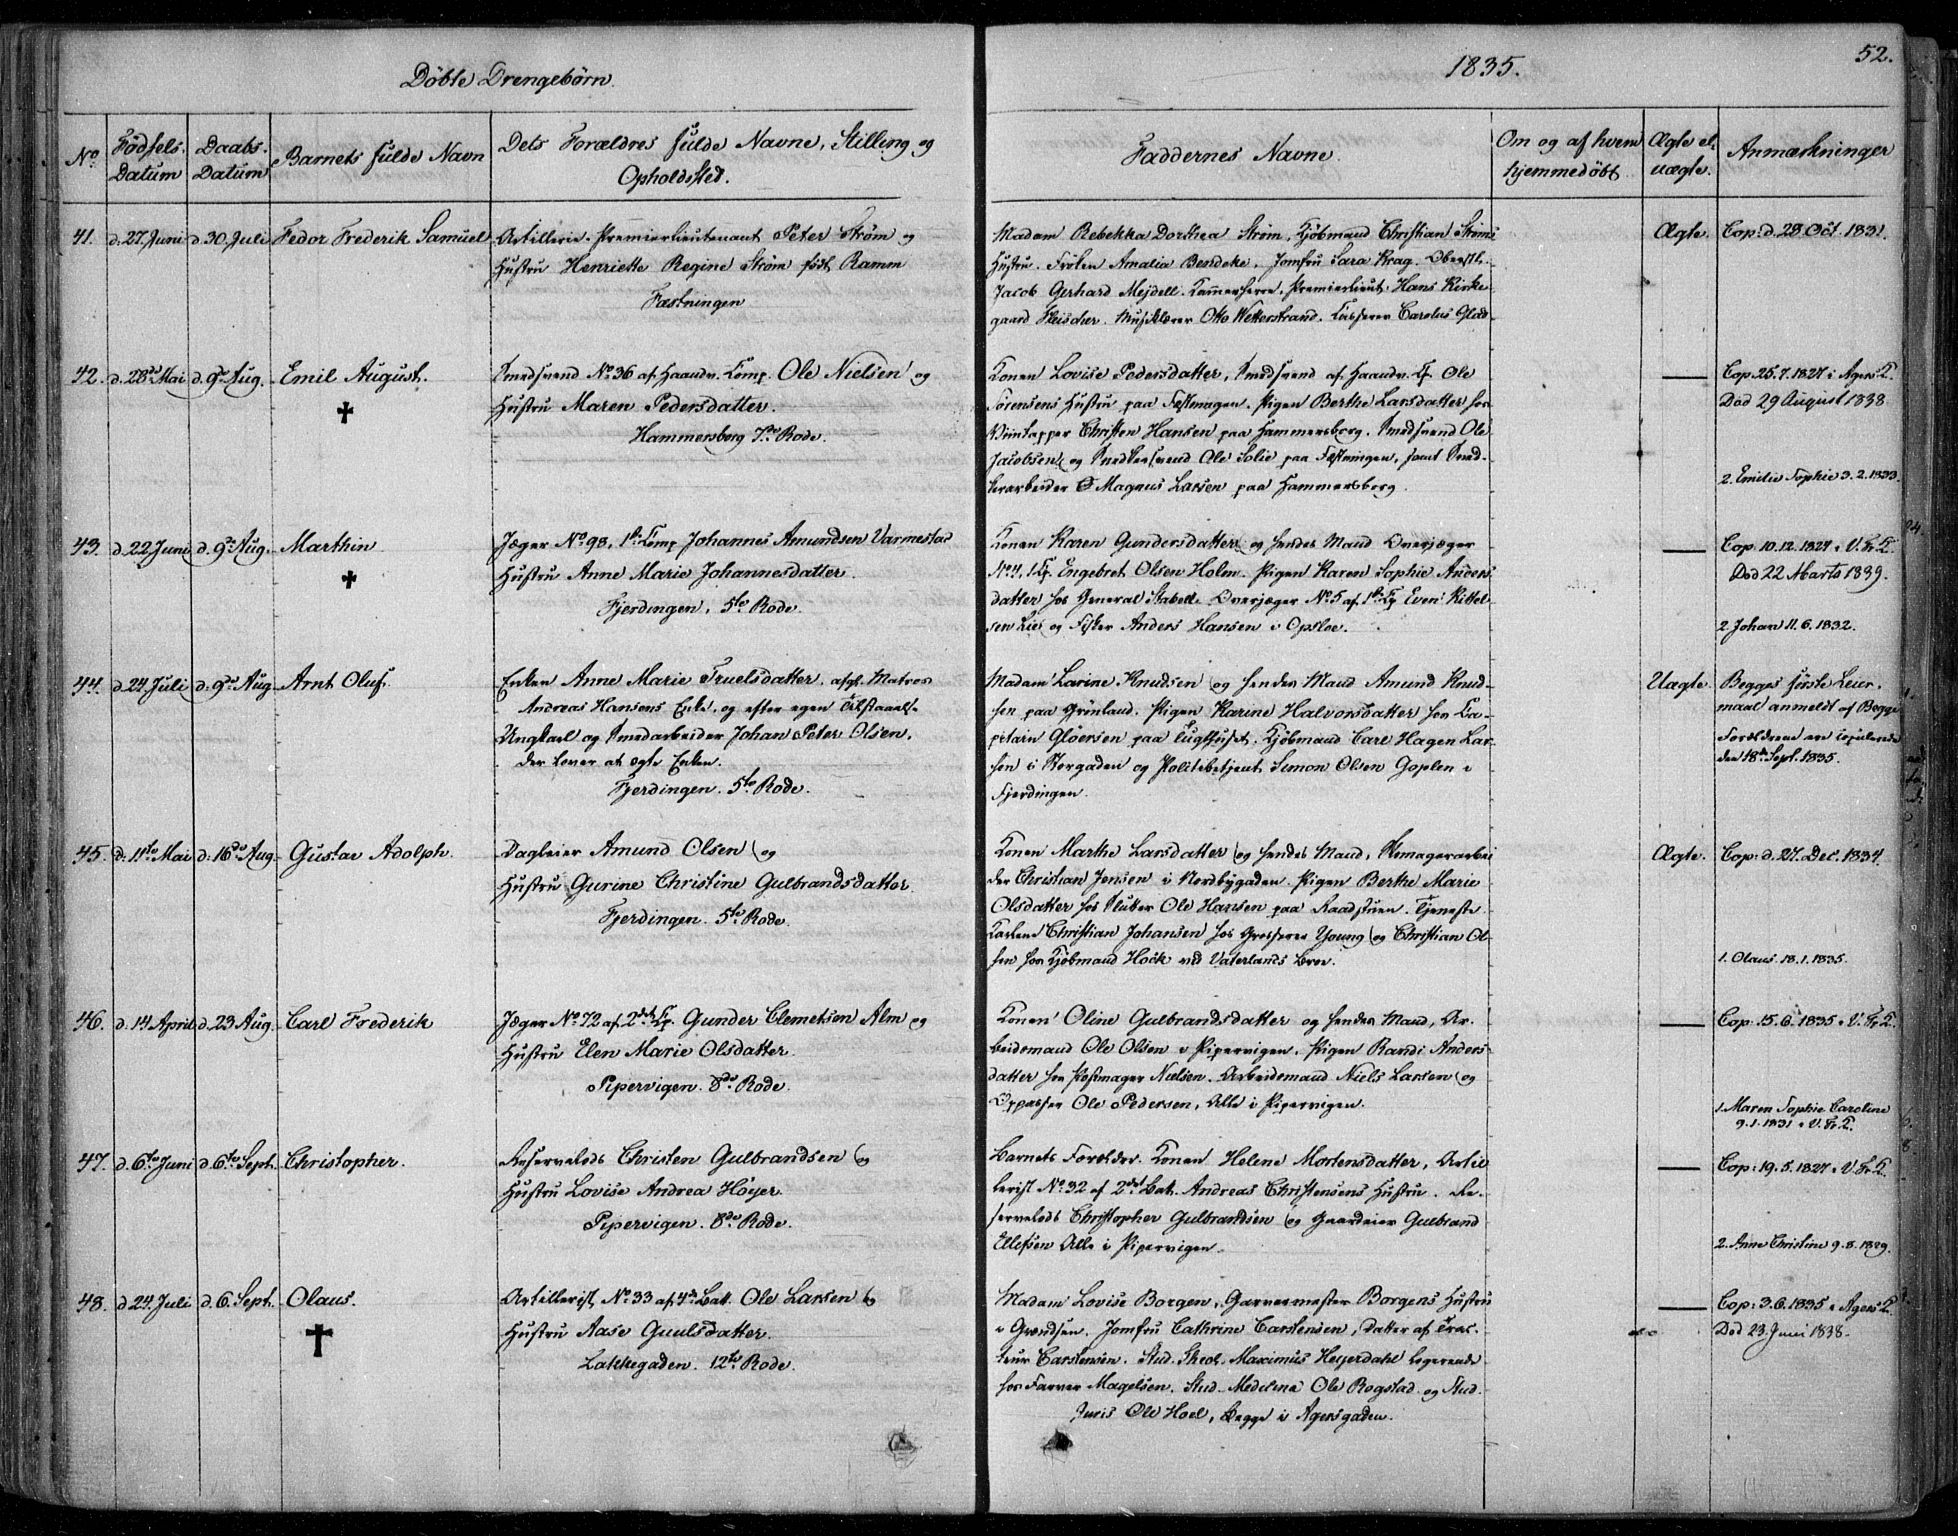 52.
Döbte Drengebörn.
1835.
No. Födsels-Datum Daabs-Datum Barnets fulde Navn Dets Forældres fulde Navne, Stilling og Opholdssted.
Faddernes Navne. Om og af hvem hjemmedöbt Ægte el. uægte. Anmærkninger
41. d. 27. Juni d. 30. Juli Fedor Frederik Samuel
Artillerie-Premierlieutenant Peter Strøm og
Hustru Henriette Regine Strøm födt Ramm
Fæstningen
Madam Rebekka Dorthea Strøm, Kjöbmand Christian Strøms
Hustru. Fröken Amalia Bendeke. Jomfru Sara Krag. Oberstl.
Jacob Gerhard Mejdell. Kammerherre, Premierlieut. Hans Kirke-
gaard Fleischer. Musiklærer Otto Wetterstrand. Kasserer Carolus Glad-
Ægte. Cop. d. 28 Oct. 1831.
42. d. 28de Mai d. 9de Aug. Emil August.
✝
Smedsvend No. 36 af Haandv. Komp. Ole Nielsen og
Hustru Maren Pedersdatter.
Hammersborg 7de Rode.
Konen Lovise Pedersdatter, Smedsvend af Haandv. Kp. Ole
Sörensens Hustru paa Pigen Berthe Larsdatter hos
Christen Hansen paa Hammersborg. Smedsvend Ole
Jacobsen og Ole Solie paa Fæstningen, samt Smed-
Magnus Larsen paa Hammersborg.
— Cop. 25. 7. 1827 i Agers K.
Död 29 August 1838.
2. Emilie Sophie 3. 2. 1833.
43. d. 22 Juni d. 9de Aug. Marthin
✝
Jæger No. 98, 1ste Komp. Johannes Amundsen Varmestad
Hustru Anne Marie Johannesdatter.
Fjerdingen, 5te Rode.
Konen Karen Gundersdatter og hendes Mand Overjæger
No. 4, 1. Kp. Engebret Olsen Holm. Pigen Karen Sophie Anders-
datter hos General Stabell. Overjæger No. 5 af 1ste Kp. Even Kittel-
sen Lie og Fisker Anders Hansen i Opsloe.
— Cop. 10. 12. 1827 i V. Fr. K.
Död 22 Marts 1839.
2. Johan 11. 6. 1832.
44. d. 24 Juli d. 9de Aug. Arnt Oluf.
Enken Anne Marie Truelsdatter, afgl. Matros
Andreas Hansens Enke, og efter egen Tilstaaelse
Ungkarl og Smedarbeider Johan Peter Olsen,
der lover at ægte Enken.
Fjerdingen. 5te Rode.
Madam Larine Knudsen og hendes Mand Amund Knud-
sen paa Grönland. Pigen Karine Halvorsdatter hos Ca-
pitain Glöersen paa Tugthuset. Kjöbmand Carl Hagen Lar-
sen i Storgaden og Politibetjent Simon Olsen Goplen i
Fjerdingen.
Uægte. Begges förste Leier-
maal anmeldt af Begge
Forældrene ere copulerede
den 18de Sept. 1835.
45. d. 11te Mai d. 16de Aug. Gustav Adolph.
Dagleier Amund Olsen og
Hustru Gurine Christine Gulbrandsdatter
Fjerdingen. 5te Rode.
Konen Marthe Larsdatter og hendes Mand, Skomagerarbei-
der Christian Jensen i Nordbygaden. Pigen Berthe Marie
Olsdatter hos Slutter Ole Hansen paa Raadstuen. Tjeneste-
Karlene Christian Johansen hos Grosserer Young og Christian Ol-
sen hos Kjöbmand Høck ved Vaterlands Broe.
Ægte. Cop: d. 27. Dec. 1834.
1. Olaus 18. 1. 1835.
46. d. 14 April d. 23 Aug. Carl Frederik
Jæger No. 72 af 2det Kp. Gunder Clemetsen Alm og
Hustru Elen Marie Olsdatter.
Pipervigen. 8de Rode.
Konen Oline Gulbrandsdatter og hendes Mand, Ar-
beidsmand Ole Olsen i Pipervigen. Pigen Randi Anders-
datter hos Nielsen. Arbeidsmand Niels Larsen og
Oppasser Ole Pedersen, Alle i Pipervigen.
— Cop: 15. 6. 1835 i V. Fr. K.
1. Maren Sophie Caroline
9. 1. 1831 i V. Fr. K.
47. d. 6te Juni d. 6te Sept. Christopher.
Reservelods Christen Gulbrandsen og
Hustru Lovise Andrea Höyer
Pipervigen. 8de Rode.
Barnets Forældre. Konen Helene Mortensdatter, Artil-
lerist No. 32 af 2det Bat. Andreas Christensens Hustru. Re-
servelods Christopher Gulbrandsen og Gaardeier Gulbrand
Ellefsen Alle i Pipervigen.
— Cop: 19. 5. 1827 i V. Fr. K.
2. Anne Christine 9. 8. 1829.
48. d. 24. Juli d. 6. Sept. Olaus.
✝
Artillerist No. 33 af 4de Batt. Ole Larsen og
Hustru Aase Guulsdatter.
Lakkegaden. 12te Rode.
Madam Lovise Borgen, Garvermester Borgens Hustru
i Grændsen. Jomfru Cathrine Carstensen, Datter af Trac-
teur Carstensen. Stud. Theol. Maximus Heyerdahl logerende
hos Farver Magelsen. Stud. Medicina Ole Rogstad og Stud.
Juris Ole Hoel, Begge i Agersgaden.
— Cop: 3. 6. 1835 i Agers K.
Död 23. Juni 1838.